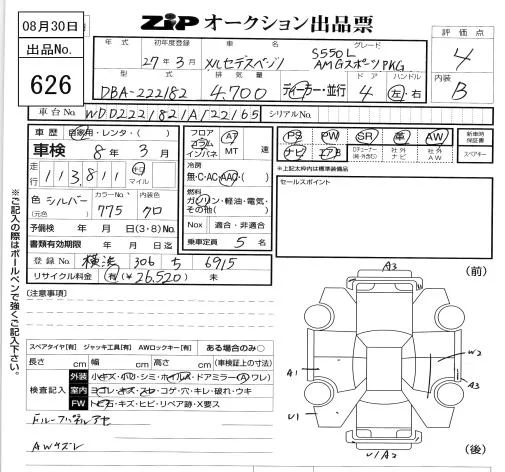 08月30日
出品No.
626
ZIP オークション出品票
年式 初年度登録 車名 グレード
27年3月 メルセデスベンツ S550L
AMGスポーツPKG
型式 排気量 ドア ハンドル
DBA-222182 4,700 ディーラー・並行 4 左・右
評価点
4
内装
B
車台No. WDD2221821A122165 シリアルNo.
車歴 自家用・レンタ・( )
車検 8年3月
走行 113,811 キロ マイル
色 シルバー カラーNo. 775 内装色 クロ
(元色)
予備検 年 月 日(3・8)No.
書類有効期限 年 月 日迄
登録No. 横浜 306 ち 6915
リサイクル料金 (有)(¥26,520) 未
フロア コラム インパネ AT MT 速
冷房
無・C・AC・AAC・( )
燃料
ガソリン・軽油・電気・その他( )
Nox 適合・非適合
乗車定員 5名
PS PW SR 革 AW
ナビ エアB Dチューナー(純・外含む) 社外ナビ 社外AW
新車時保証書
スペアキー
*上記太枠内は標準装備品
セールスポイント
※ご記入の際はボールペンで強くご記入下さい。
[注意事項]
スペアタイヤ[有] ジャッキ工具[有] AWロックキー[有] ある場合のみ○
長さ cm 幅 cm 高さ cm (車検証上の寸法)
検査記入
外装 小キズ・小凹・シミ・ホイルキズ・ドアミラー(A)ワレ)
室内 ヨゴレ・キズ・スレ・コゲ・穴・キレ・破れ・ウキ
FW トビ石・キズ・ヒビ・リペア跡・X要ス
AWキズレ
A3
(前)
W2
A1
A3
U1
U/A2
(後)